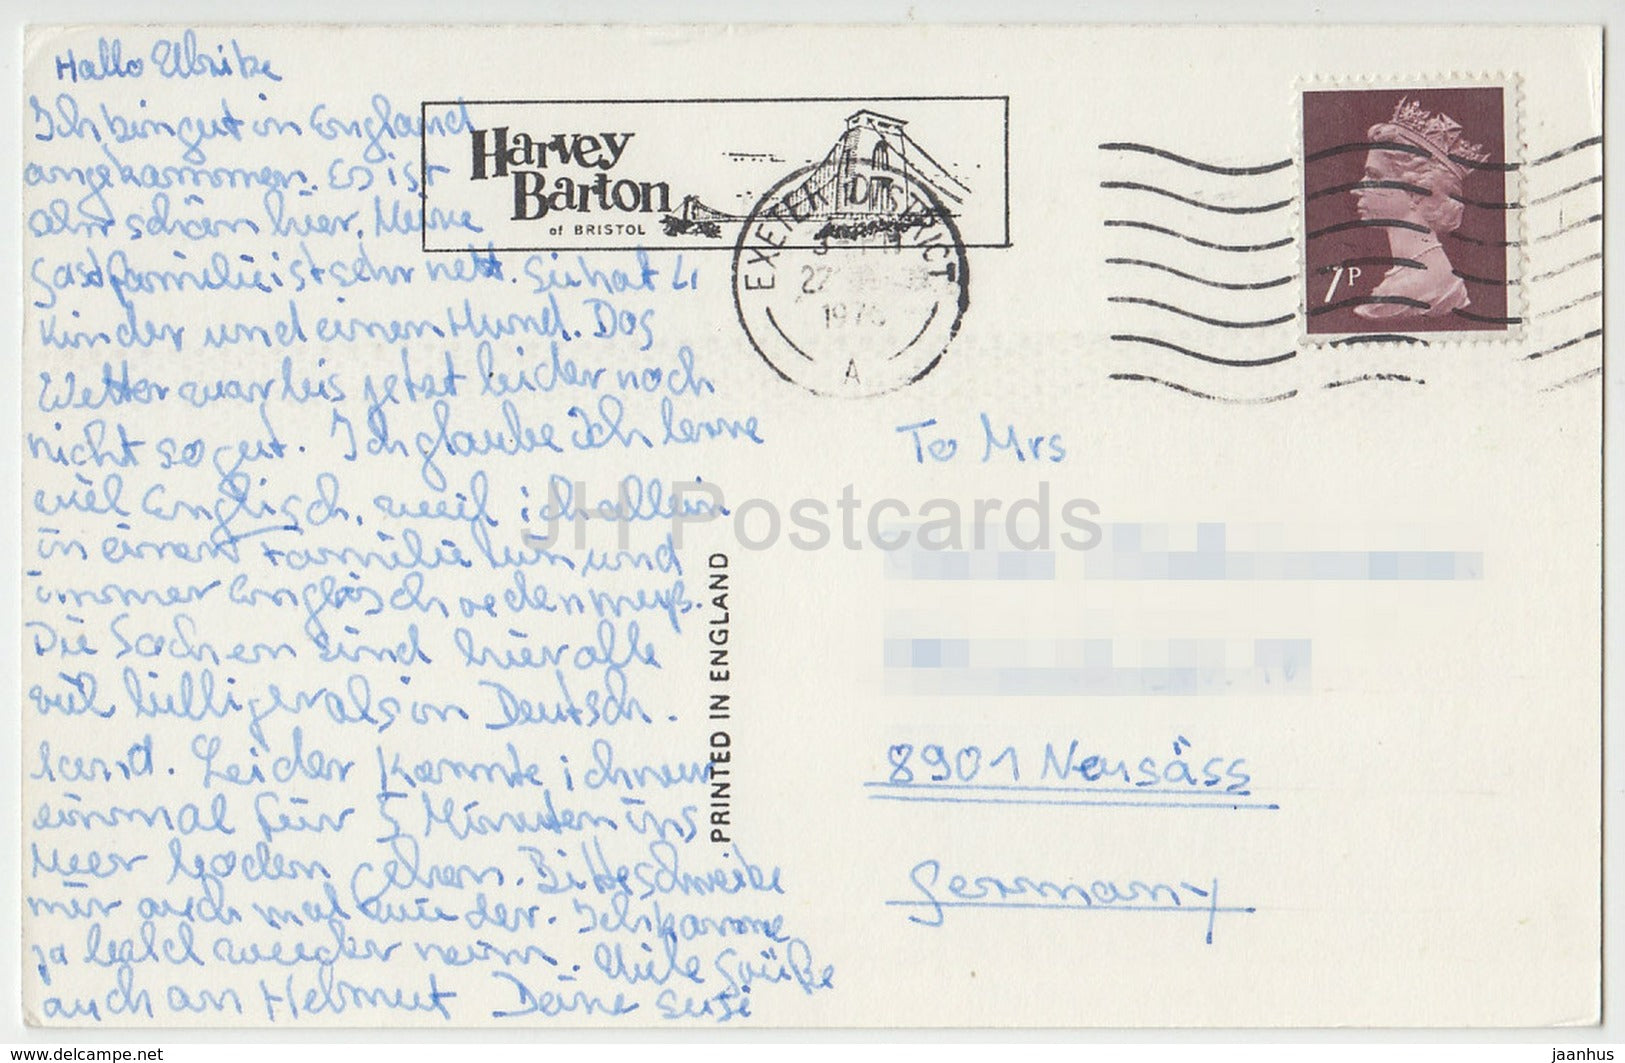 Hallo Ulrike
Ich bin gut in England
angekommen. Es ist
sehr schön hier. Meine
Gastfamilie ist sehr nett. Sie hat 4
Kinder und einen Hund. Das
Wetter war bis jetzt leider noch
nicht so gut. Ich glaube ich lerne
viel Englisch, weil ich allein
in einer Familie bin und
immer Englisch reden muß.
Die Sachen sind hier alle
viel billiger als in Deutsch-
land. Leider konnte ich nur
einmal für 5 Minuten ins
Meer baden gehen. Bitte schreibe
mir auch mal wieder. Ich komme
ja bald wieder heim. Viele Grüße
auch an Helmut Deine Susi
Harvey
Barton
of BRISTOL
EXETER DISTRICT
27
A
7P
To Mrs
8901 Neusäss
Germany
PRINTED IN ENGLAND
JH Postcards
www.delcampe.net
jaanhus